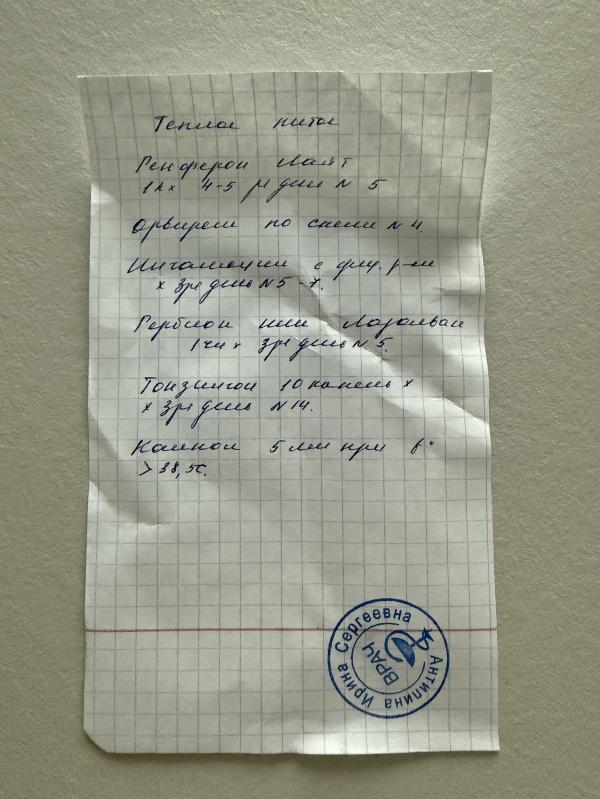 Теплое питье
Генферон Лайт
1к х 4-5 р/день N 5
Орвирем по схеме N 4.
Ингаляции с физ. р-м
х 3р/день N 5-7.
Гербион или Лазолван
1чл х 3р/день N 5.
Тонзилгон 10 капель х
х 3р/день N 14.
Калпол 5 мл при t°
> 38,5С.
Антипина Ирина Сергеевна
ВРАЧ